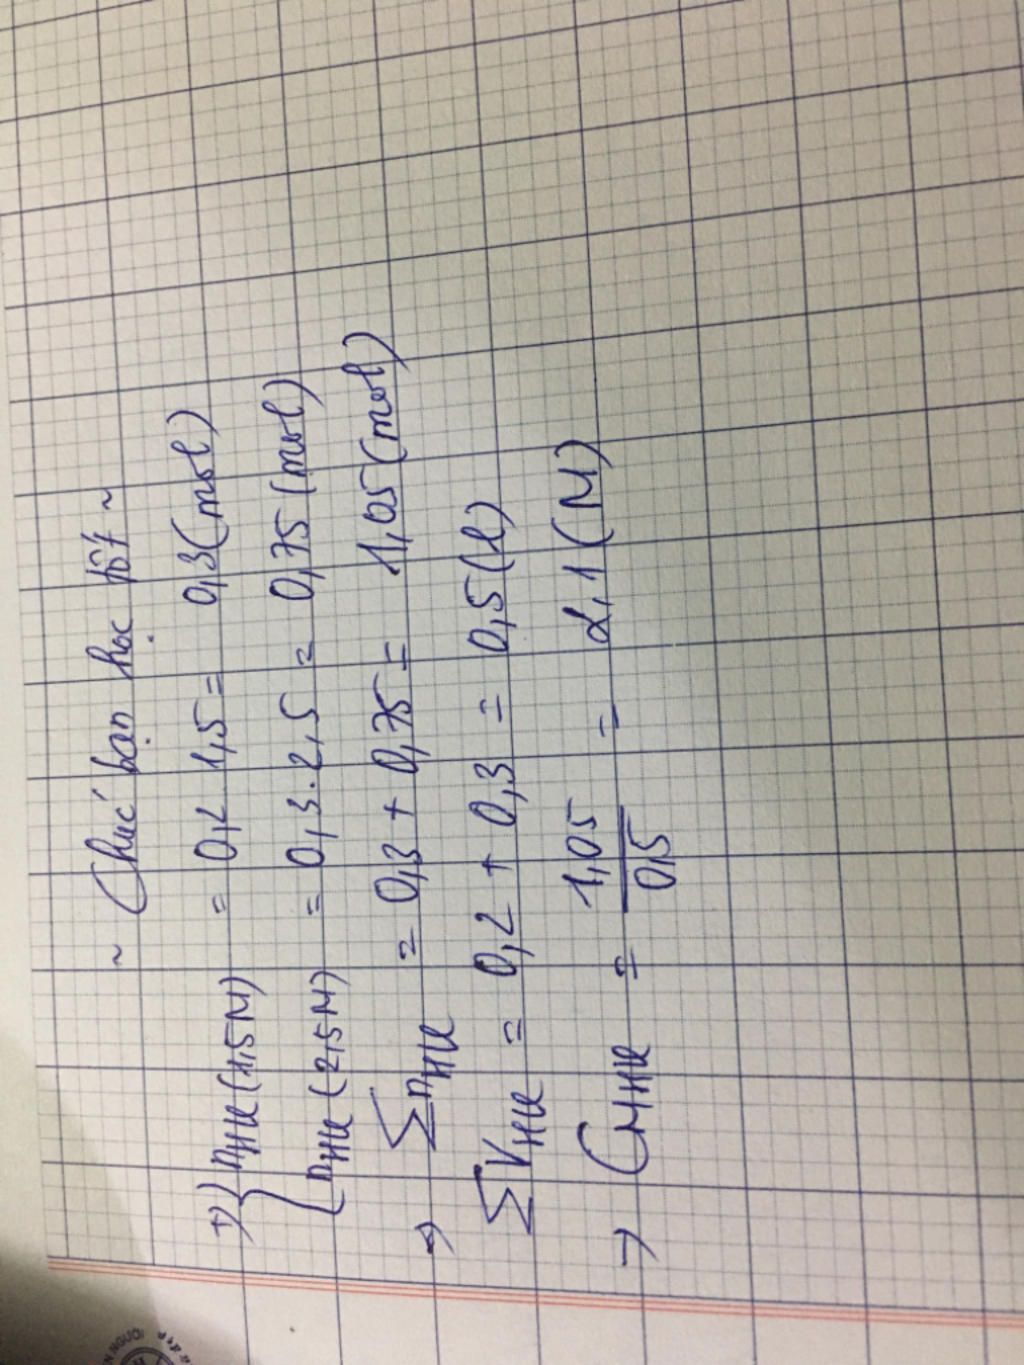 ~ Chúc bạn học tốt ~
1) { nHCl (1,5M) = 0,2 . 1,5 = 0,3 (mol)
nHCl (2,5M) = 0,3 . 2,5 = 0,75 (mol)
⇒ ΣnHCl = 0,3 + 0,75 = 1,05 (mol)
ΣVHCl = 0,2 + 0,3 = 0,5 (l)
→ CMHCl = 1,05 / 0,5 = 2,1 (M)
NGƯỜI